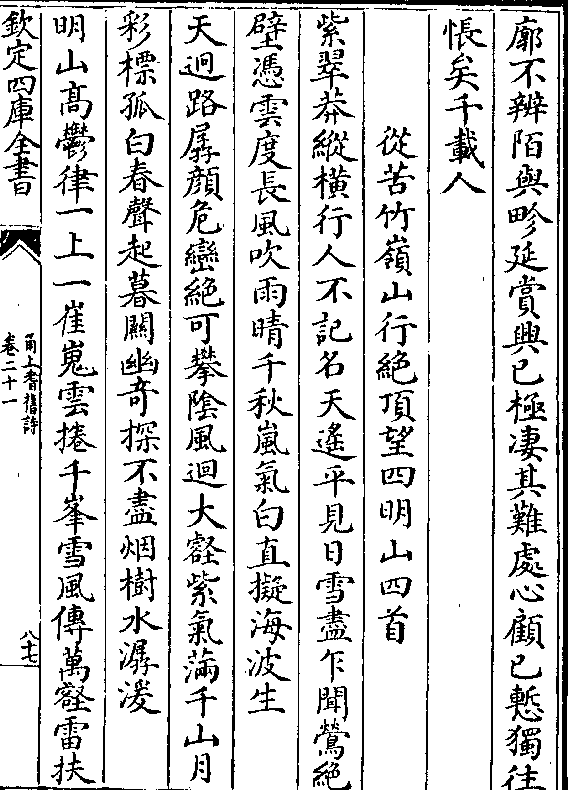 廓不辨陌與畛延賞興已極凄其難處心顧已慙獨往
悵矣千載人
從苦竹嶺山行絶頂望四明山四首
紫翠莽縱橫行人不記名天遙平見日雪盡乍聞鶯絶
壁憑雲度長風吹雨晴千秋嵐氣白直擬海波生
天迥路孱顔危巒絶可攀陰風迴大壑紫氣滿千山月
彩標孤白春聲起暮關幽竒探不盡烟樹水潺湲
明山髙鬱律一上一崔嵬雲捲千峯雪風傳萬壑雷扶
欽定四庫全書
甬上耆舊詩
卷二十一
八十七